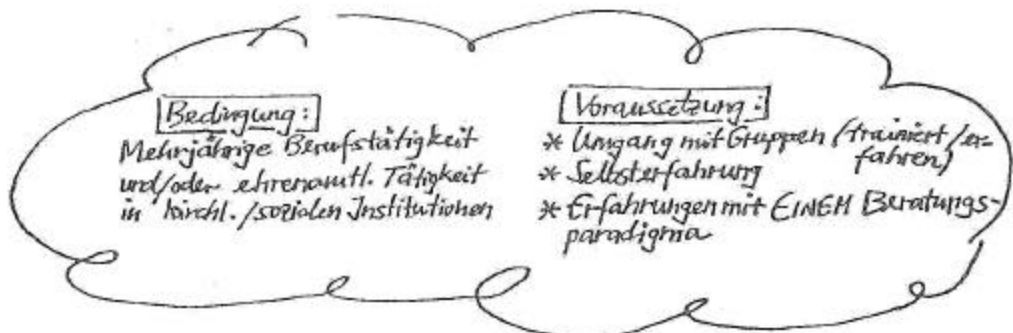 Bedingung:
Mehrjährige Berufstätigkeit
und/oder ehrenamtl. Tätigkeit
in kirchl./sozialen Institutionen
Voraussetzung:
* Umgang mit Gruppen (trainiert/er-
fahren)
* Selbsterfahrung
* Erfahrungen mit EINEM Beratungs-
paradigma